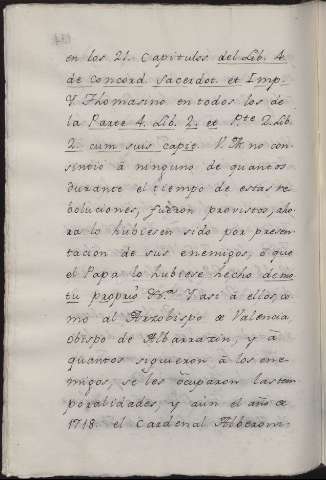 en los 21. Capitulos del Lib. 4.
de Concord. Sacerdot. et Imp.
Y Thomasino en todos los de
la Parte 4. Lib. 2. et Pte 2. Lib.
2. cum suis capit. V. M. no con-
sintió à ninguno de quantos
durante el tiempo de estas re
boluciones, fueron provistos, aho
ra lo hubiesen sido por presen
tacion de sus enemigos, ò que
el Papa lo hubiese hecho demo
tu proprio &a. Y asi à ellos, co
mo al Arzobispo de Valencia
obispo de Albarrazin, y à
quantos siguieron à los ene
migos, se les ocuparon las tem
poralidades, y aùn el año de
1718. el Cardenal Alberoni